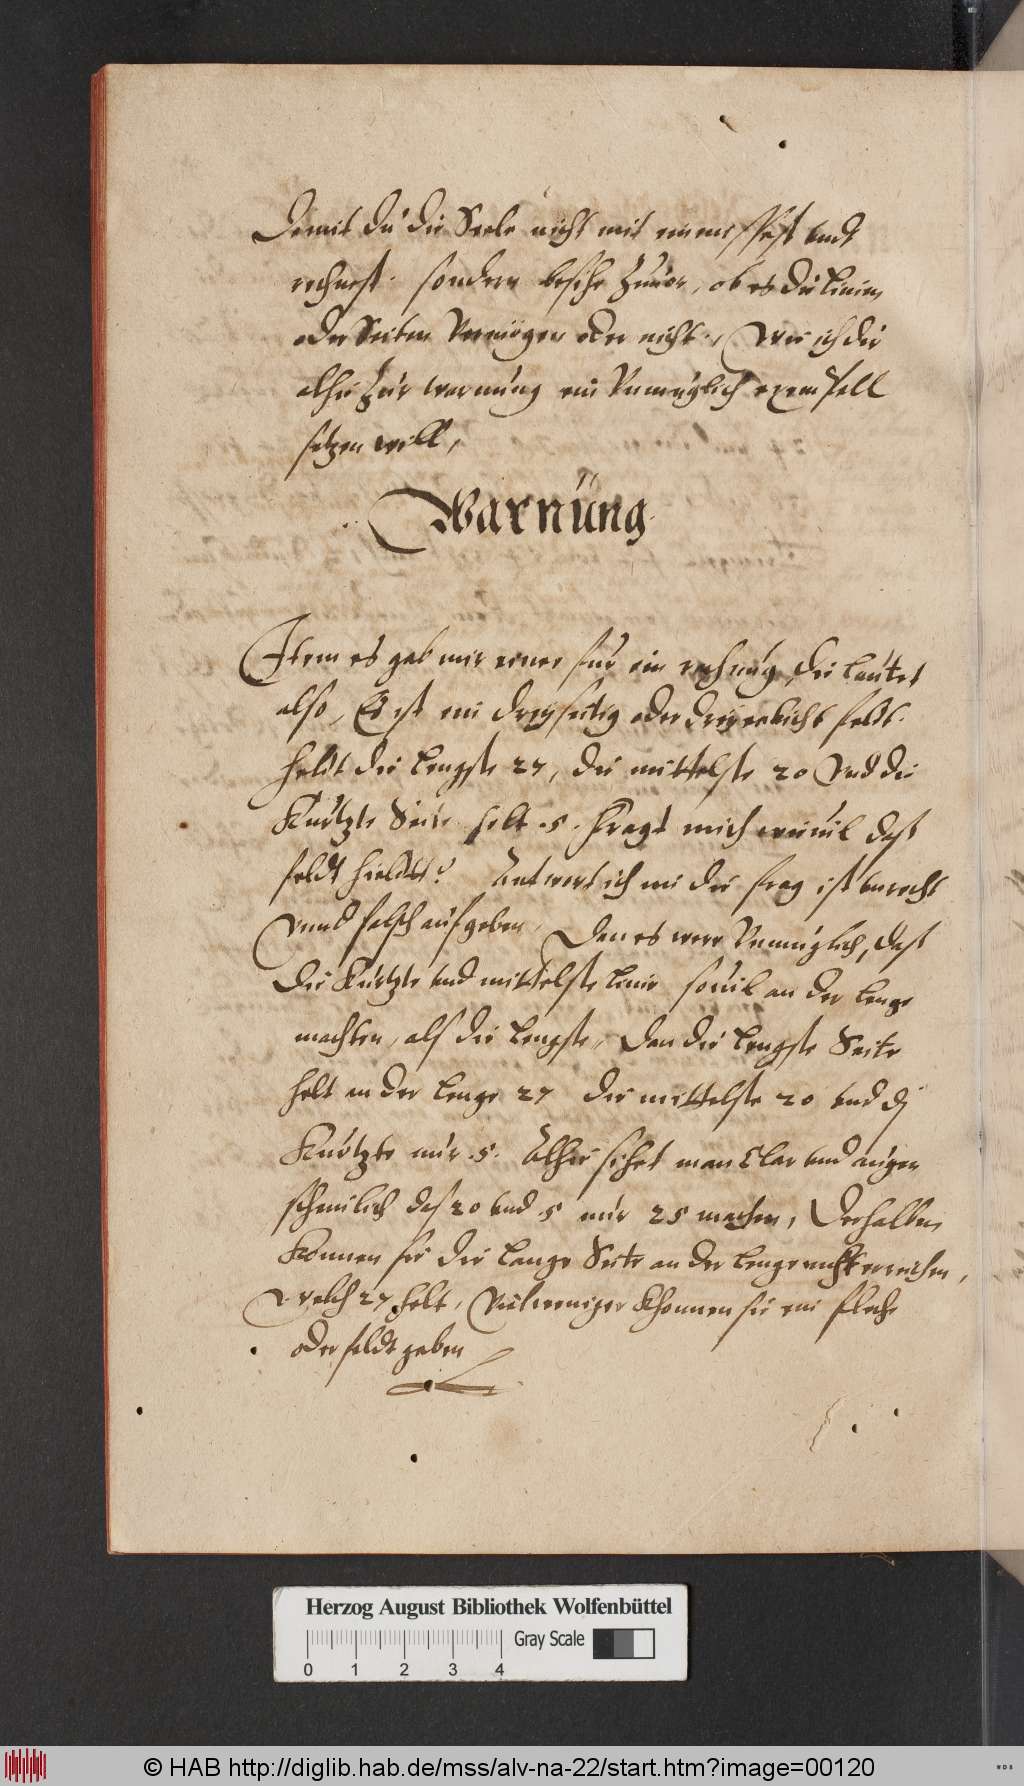 Damit du die Seele nicht mit einem Spest vndt
rechnest. sondern besehe zuuor, ob es die Linien
oder Seiten Vermögen oder nicht., Wie ich dir
alhie zur warnung ein Vnmuglich exempell
setzen will,
Warnüng
Item es gab mir einer fur ein rechnug, die lautet
also, Es ist ein dreyseitig oder dreyeckicht feldt.
heldt die lengste 27, die mittelste 20 Vnd die
Kurtzte Seite helt .5. fragt mich wieuil dass
feldt hieldt? Antwort ich nu die frag ist vnrecht
Vnnd falsch aufgeben, Dan es were Vnmuglich, dass
die Kurtzte vnd mittelste linie souil an der lenge
machten, als die lengste, dan die lengste Seite
helt an der lenge 27 die mittelste 20 vnd di
Kurtzte nur .5. Alhie sihet man Clar vnd augen
scheinlich das 20 vnd 5 nur 25 machen, Derhalben
Konnen sie die lange Seite an der lenge nicht erreichen,
Welch 27 helt, Vielweniger Khonnen sie ein fleche
oder feldt geben
Herzog August Bibliothek Wolfenbüttel
Gray Scale
0 1 2 3 4
© HAB http://diglib.hab.de/mss/alv-na-22/start.htm?image=00120